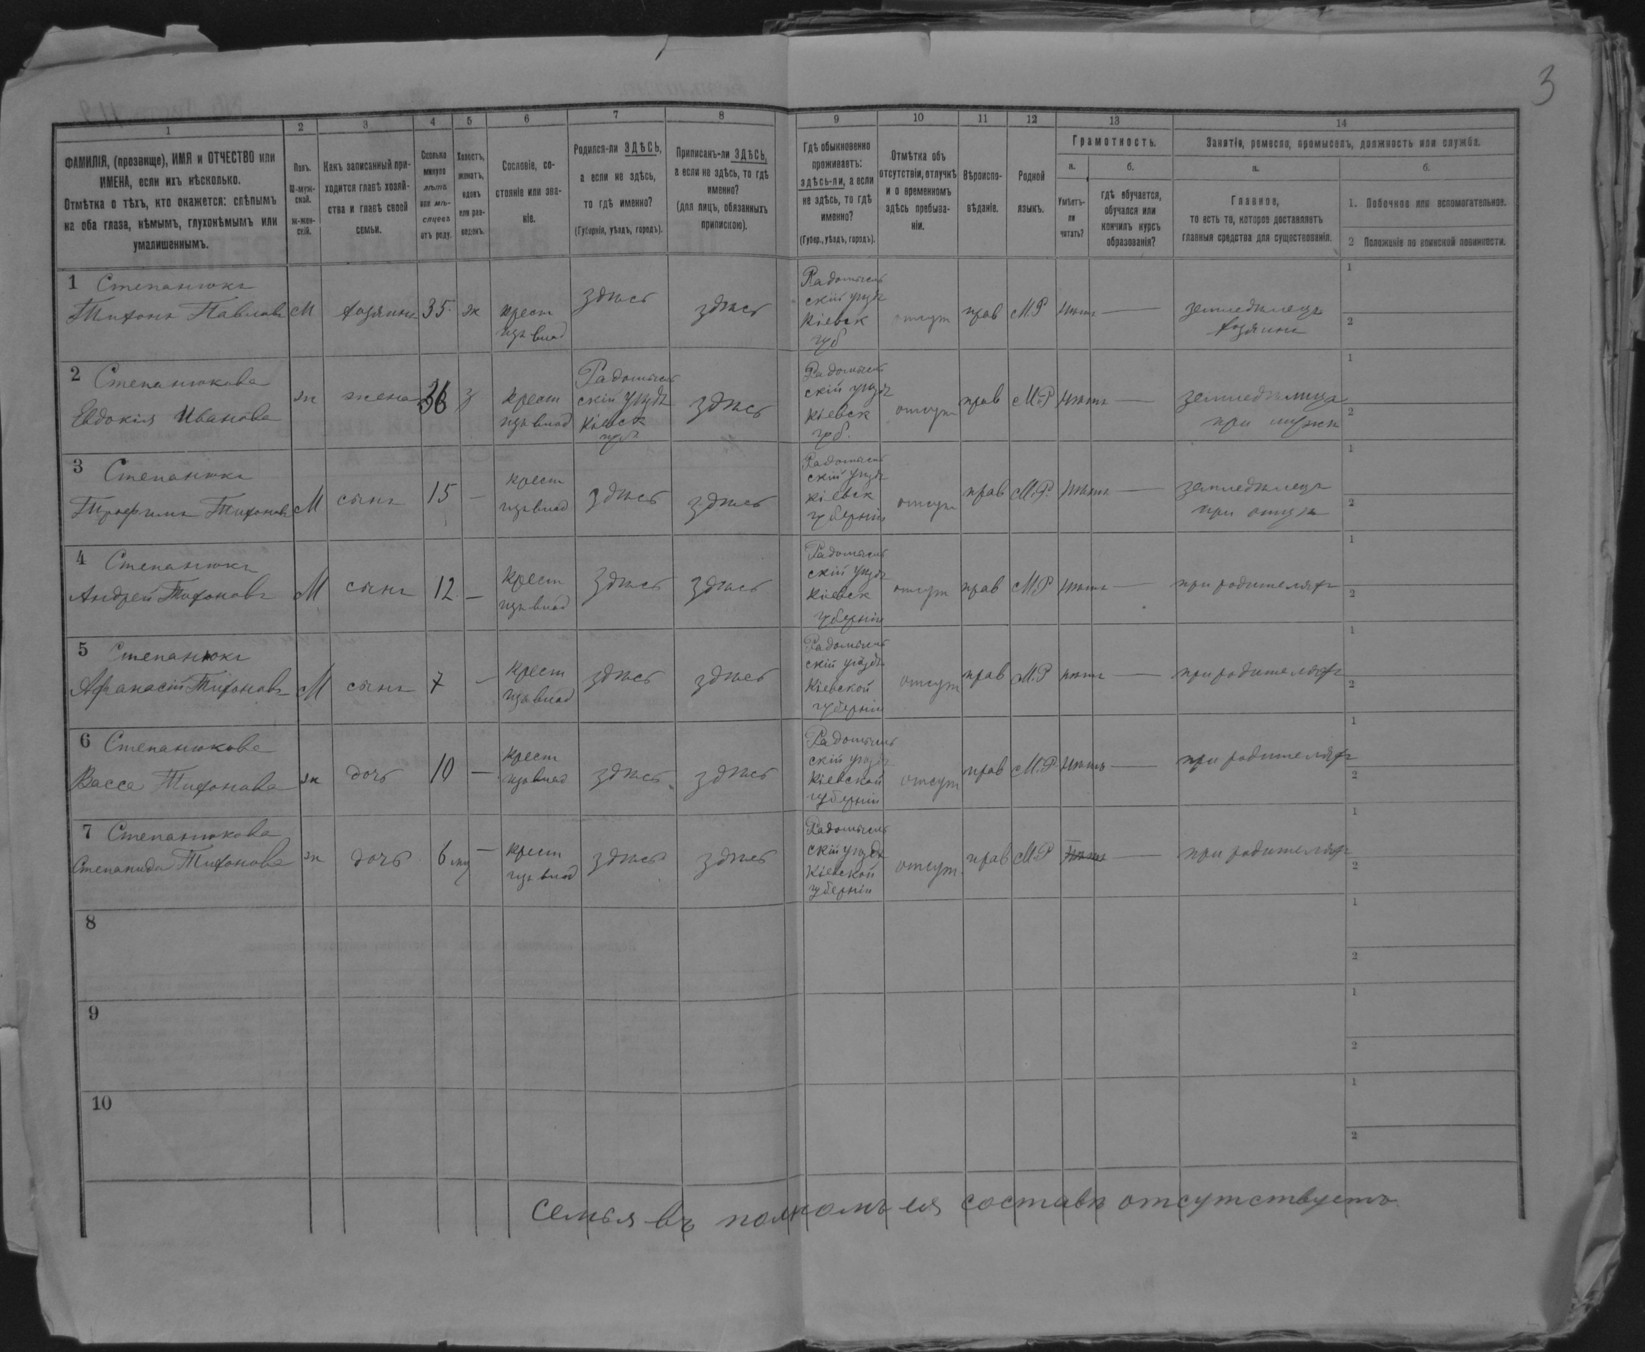 3
1 2 3 4 5 6 7 8 9 10 11 12 13 14
ФАМИЛІЯ, (прозвище), ИМЯ и ОТЧЕСТВО или
ИМЕНА, если ихъ нѣсколько.
Отмѣтка о тѣхъ, кто окажется: слѣпымъ
на оба глаза, нѣмымъ, глухонѣмымъ или
умалишеннымъ.
Полъ.
М-муж-
ской.
Ж-жен-
скій.
Какъ записанный при-
ходится главѣ хозяй-
ства и главѣ своей
семьи.
Сколько
минуло
лѣтъ
или мѣ-
сяцевъ
отъ роду.
Холостъ,
женатъ,
вдовъ
или раз-
веденъ.
Сословіе, со-
стояніе или зва-
ніе.
Родился-ли ЗДѢСЬ,
а если не здѣсь,
то гдѣ именно?
(Губернія, уѣздъ, городъ).
Приписанъ-ли ЗДѢСЬ,
а если не здѣсь, то гдѣ
именно?
(для лицъ, обязанныхъ
припискою).
Гдѣ обыкновенно
проживаетъ:
здѣсь-ли, а если
не здѣсь, то гдѣ
именно?
(Губер., уѣздъ, городъ).
Отмѣтка объ
отсутствіи, отлучкѣ
и о временномъ
здѣсь пребыва-
ніи.
Вѣроиспо-
вѣданіе.
Родной
языкъ.
Грамотность.
а.
Умѣетъ-
ли
читать?
б.
гдѣ обучается,
обучался или
кончилъ курсъ
образованія?
Занятіе, ремесло, промыселъ, должность или служба.
а.
Главное,
то есть то, которое доставляетъ
главныя средства для существованія.
б.
1. Побочное или вспомогательное.
2 Положеніе по воинской повинности.
1 Степанюкъ
Тихонъ Павловъ М хозяинъ 35 ж крест здѣсь здѣсь Радомысль
скій уѣздъ
Кіевск
губ отсут прав М.Р нѣтъ — земледѣлецъ
хозяинъ
1
2
2 Степанюкова
Евдокія Иванова ж жена 36 з крест Радомысль
скій уѣздъ
Кіевск
губ здѣсь Радомысль
скій уѣздъ
Кіевск
губ. отсут прав М.Р нѣтъ — земледѣлица
при мужѣ
1
2
3 Степанюкъ
Трофимъ Тихоновъ М сынъ 15 — крест здѣсь здѣсь Радомысль
скій уѣздъ
Кіевск
губерніи отсут прав М.Р нѣтъ — земледѣлецъ
при отцѣ
1
2
4 Степанюкъ
Андрей Тихоновъ М сынъ 12 — крест здѣсь здѣсь Радомысль
скій уѣздъ
Кіевск
губерніи отсут прав М.Р нѣтъ — при родителяхъ
1
2
5 Степанюкъ
Афанасій Тихоновъ М сынъ 7 — крест здѣсь здѣсь Радомысль
скій уѣздъ
Кіевской
губерніи отсут прав М.Р нѣтъ — при родителяхъ
1
2
6 Степанюкова
Васса Тихонова ж дочь 10 — крест здѣсь здѣсь Радомысль
скій уѣздъ
Кіевской
губерніи отсут прав М.Р нѣтъ — при родителяхъ
1
2
7 Степанюкова
Степанида Тихонова ж дочь 6 — крест здѣсь здѣсь Радомысль
скій уѣздъ
Кіевской
губерніи отсут прав М.Р нѣтъ — при родителяхъ
1
2
8
1
2
9
1
2
10
1
2
Семья въ полномъ ея составѣ отсутствуетъ